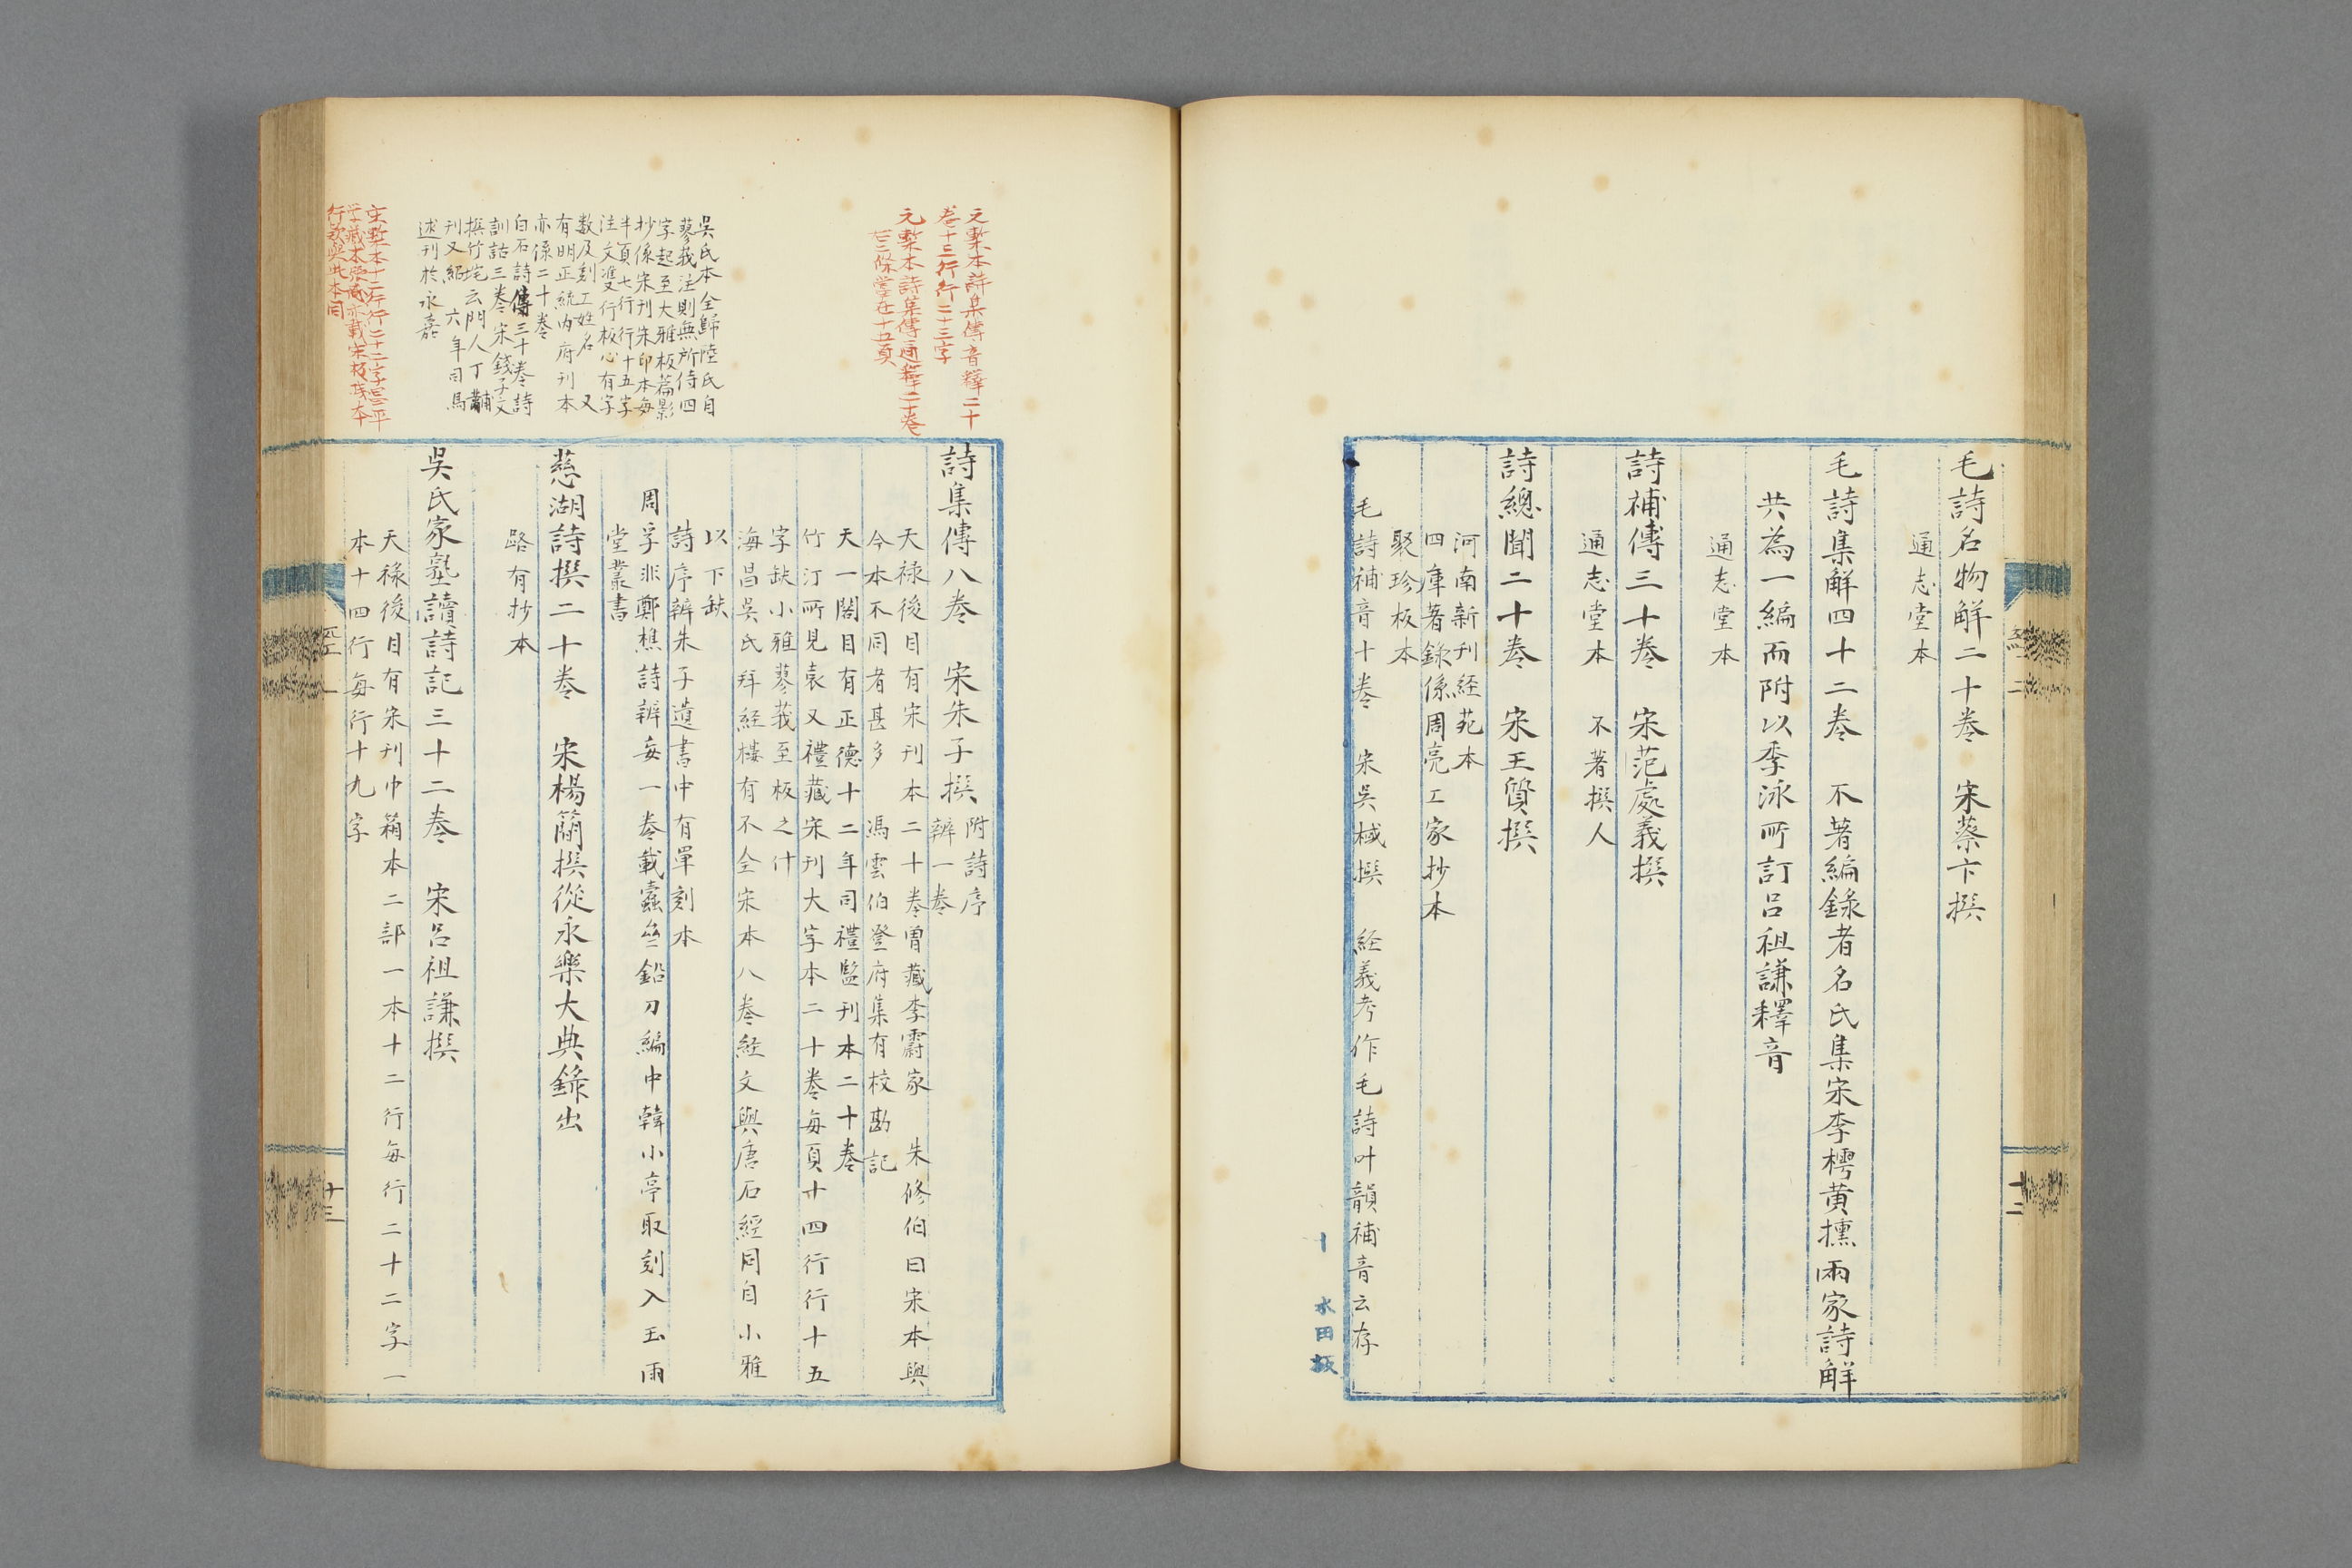 毛詩名物解二十卷　宋蔡卞撰
通志堂本
毛詩集解四十二卷　不著編錄者名氏集宋李樗黃㩃兩家詩解
共為一編而附以李泳所訂呂祖謙釋音
通志堂本
詩補傳三十卷　宋范處義撰
通志堂本　不著撰人
詩總聞二十卷　宋王質撰
河南新刊經苑本
四庫著錄係周亮工家抄本
聚珍板本
毛詩補音十卷　宋吳棫撰　經義考作毛詩叶韻補音云存
經二
十二
水田板
元槧本詩集傳音釋二十
卷十三行行二十三字
元槧本詩集傳通釋二十卷
吳氏本全歸陸氏自
蓼莪注則無所恃四
字起至大雅板篇影
抄係宋刊朱印本每
半頁七行行十五字
注文雙行板心有字
數及刻工姓名　又
有明正統內府刊本
亦係二十卷
白石詩傳三十卷詩
訓詁三卷宋錢子文
撰竹垞云門人丁黼
刊又紹　六年司馬
述刊於永嘉
詩集傳八卷　宋朱子撰
附詩序
辨一卷
天祿後目有宋刊本二十卷曾藏李霨家　朱修伯曰宋本與
今本不同者甚多　馮雲伯登府集有校勘記
天一閣目有正德十二年司禮監刊本二十卷
竹汀所見袁又禮藏宋刊大字本二十卷每頁十四行行十五
字缺小雅蓼莪至板之什
海昌吳氏拜經樓有不全宋本八卷經文與唐石經同自小雅
以下缺
詩序辨朱子遺書中有單刻本
周孚非鄭樵詩辨妄一卷載蠹齋鉛刀編中韓小亭取刻入玉雨
堂叢書
慈湖詩撰二十卷　宋楊簡撰從永樂大典錄出
路有抄本
吳氏家塾讀詩記三十二卷　宋呂祖謙撰
天祿後目有宋刊巾箱本二部一本十二行每行二十二字一
本十四行每行十九字
十三